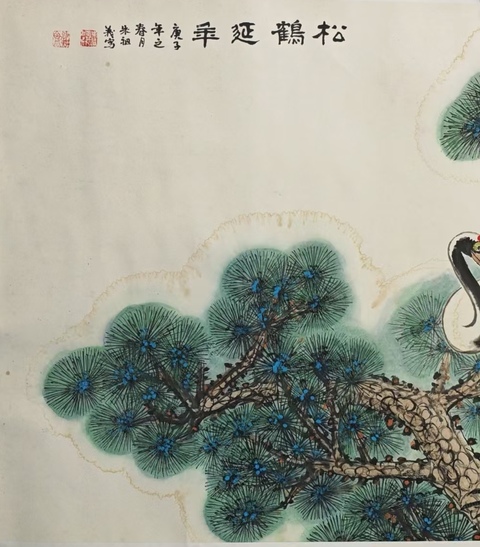 松鶴延年
庚子
年之
春月
朱祖
義寫